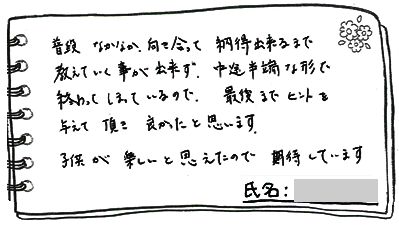 普段 なかなか 向き合って 納得出来るまで
教えていく事が出来ず、中途半端な形で
終わってしまっているので、最後までヒントを
与えて頂き 良かったと思います。
子供が 楽しいと思えたので 期待しています
氏名：